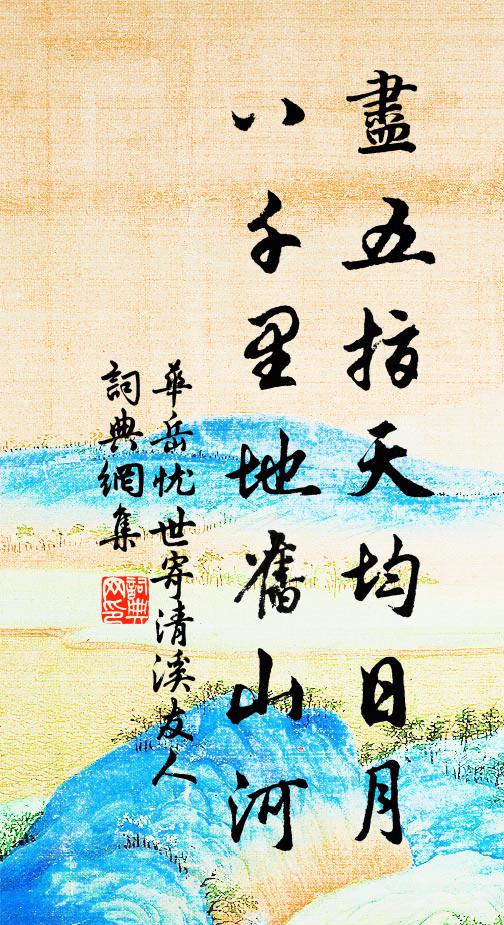 盡五指天均日月
八千里地舊山河
華岳忧世寄清溪友人
詞典網集
詞典網印